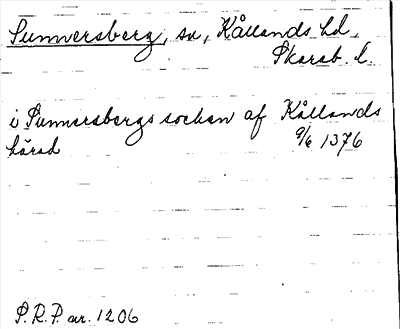 Sunnersberg, sn, Kållands hd.
Skarab. l.
i Sunnersbergs sockan af Kållands
härad 9/6 1376
S.R.P. nr. 1206